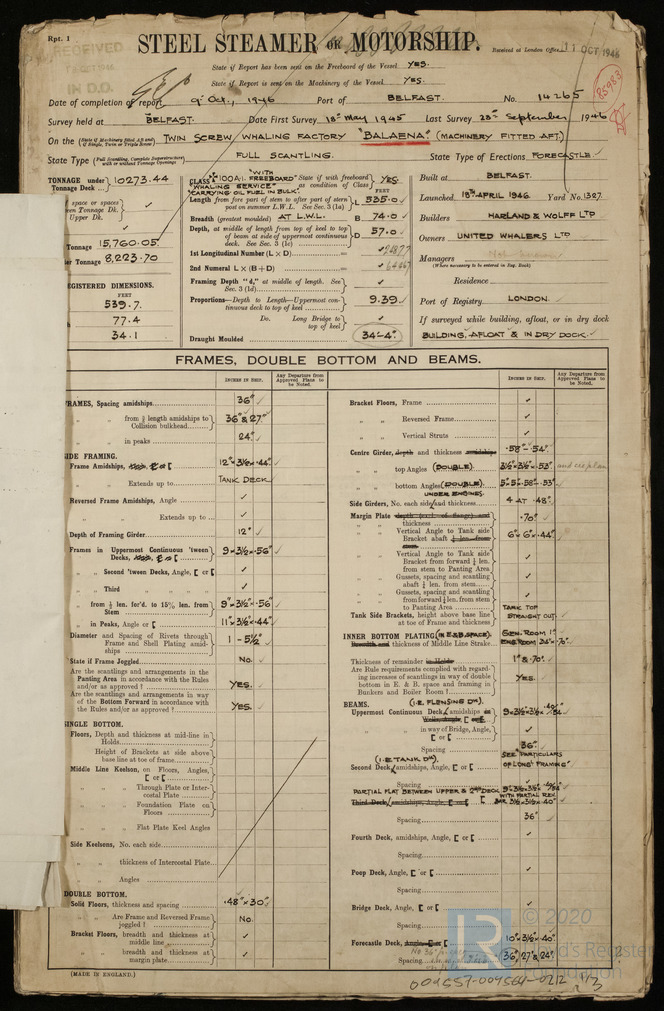 Rpt. 1
STEEL STEAMER OR MOTORSHIP.
Received at London Office 11 OCT 1946
RECEIVED
IN D.O.
State if Report has been sent on the Freeboard of the Vessel YES.
State if Report is sent on the Machinery of the Vessel YES.
Date of completion of report 9th Oct., 1946 Port of BELFAST. No. 14265
Survey held at BELFAST. Date First Survey 18th May 1945 Last Survey 28th September 1946
On the (State if Machinery fitted Aft and if Single, Twin or Triple Screw) TWIN SCREW WHALING FACTORY "BALAENA" (MACHINERY FITTED AFT.)
State Type (Full Scantling, Complete Superstructure with or without Tonnage Openings) FULL SCANTLING. State Type of Erections FORECASTLE.
TONNAGE under Tonnage Deck 10273.44
of space or spaces
Upper Dk.
Tonnage 15,760.05
Tonnage 8,223.70
REGISTERED DIMENSIONS.
FEET
539.7.
77.4
34.1
CLASS 100A.1. "WITH FREEBOARD" State if with freeboard as condition of Class YES
"WHALING SERVICE"
"CARRYING OIL FUEL IN BULK".
FEET
Length from fore part of stem to after part of stern post on summer L.W.L. See Sec. 3 (1a) L 535.0
Breadth (greatest moulded) AT L.W.L. B 74.0
Depth, at middle of length from top of keel to top of beam at side of uppermost continuous deck. See Sec. 3 (1c) D 57.0
1st Longitudinal Number (L × D)
2nd Numeral L × (B + D)
Framing Depth "d," at middle of length. See Sec. 3 (1d)
Proportions—Depth to Length—Uppermost continuous deck to top of keel 9.39
Do. Long Bridge to top of keel
Draught Moulded 34'-4"
Built at BELFAST.
Launched 18TH APRIL 1946 Yard No. 1327.
Builders HARLAND & WOLFF LTD
Owners UNITED WHALERS LTD
Managers
(Where necessary to be entered in Reg. Book)
Residence
Port of Registry LONDON.
If surveyed while building, afloat, or in dry dock
BUILDING, AFLOAT & IN DRY DOCK.
FRAMES, DOUBLE BOTTOM AND BEAMS.
INCHES IN SHIP.
Any Departure from Approved Plans to be Noted.
FRAMES, Spacing amidships 36"
" " from ⅗ length amidships to Collision bulkhead 36" & 27"
" " in peaks 24"
SIDE FRAMING.
Frame Amidships, 12" × 3½" × .44"
" " Extends up to TANK DECK
Reversed Frame Amidships, Angle
" " Extends up to
Depth of Framing Girder 12"
Frames in Uppermost Continuous 'tween Decks, 9 × 3½ × .56"
" " Second 'tween Decks, Angle, [ or [
" " Third
" " from ⅗ len. for'd. to 15% len. from Stem 9" × 3½" × .56"
" " in Peaks, Angle or [ 11" × 3½" × .44"
Diameter and Spacing of Rivets through Frame and Shell Plating amidships 1 - 5½"
State if Frame Joggled No.
Are the scantlings and arrangements in the Panting Area in accordance with the Rules and/or as approved? YES.
Are the scantlings and arrangements in way of the Bottom Forward in accordance with the Rules and/or as approved? YES.
SINGLE BOTTOM.
Floors, Depth and thickness at mid-line in Holds
" Height of Brackets at side above base line at toe of frame
Middle Line Keelson, on Floors, Angles, [ or [
" " Through Plate or Intercostal Plate
" " Foundation Plate on Floors
" " Flat Plate Keel Angles
Side Keelsons, No. each side
" " thickness of Intercostal Plate
" " Angles
DOUBLE BOTTOM.
Solid Floors, thickness and spacing .48" × 30"
" " Are Frame and Reversed Frame joggled? No.
Bracket Floors, breadth and thickness at middle line
" " breadth and thickness at margin plate
(MADE IN ENGLAND.)
Bracket Floors, Frame
" " Reversed Frame
" " Vertical Struts
Centre Girder, depth and thickness amidships .58" - .54"
" " top Angles (DOUBLE) 3½" × 3½" × .53"
" " bottom Angles (DOUBLE). 5" × 5" × .58" - .53"
UNDER ENGINES.
Side Girders, No. each side and thickness 4 AT .48"
Margin Plate depth (excl. of flange) and thickness .70"
" " Vertical Angle to Tank Side Bracket abaft ¼ len. from stem 6" × 6" × .44"
" " Vertical Angle to Tank Side Bracket from forward ¼ len. from stem to Panting Area
" " Gussets, spacing and scantling abaft ¼ len. from stem
" " Gussets, spacing and scantling from forward ¼ len. from stem to Panting Area
Tank Side Brackets, height above base line at toe of Frame and thickness TANK TOP STRAIGHT OUT
INNER BOTTOM PLATING (IN E & B SPACE). Breadth and thickness of Middle Line Strake GEN. ROOM 1"
Thickness of remainder in Holds 1" & .70"
Are Rule requirements complied with regarding increases of scantlings in way of double bottom in E. & B. space and framing in Bunkers and Boiler Room? YES.
BEAMS. (I.E. FLENSING DK).
Uppermost Continuous Deck, amidships
" " in way of Bridge, Angle, [ or [
" " Spacing 36"
(I.E. TANK DK).
Second Deck, amidships, Angle, [ or [ SEE "PARTICULARS OF LONGL FRAMING"
" " Spacing
PARTIAL FLAT BETWEEN UPPER & 2ND DECK
WITH PARTIAL REV. BAR 3½ × 3½ × .40"
Third Deck, amidships, Angle, [ or [
" " Spacing 36"
Fourth Deck, amidships, Angle, [ or [
" " Spacing
Poop Deck, Angle, [ or [
" " Spacing
Bridge Deck, Angle, [ or [
" " Spacing
Forecastle Deck, Angle, [ or [ 10" × 3½" × .40"
" " Spacing 36", 27" & 24"
© 2020
Lloyd's Register
Foundation
004557-004564-0212 1/3